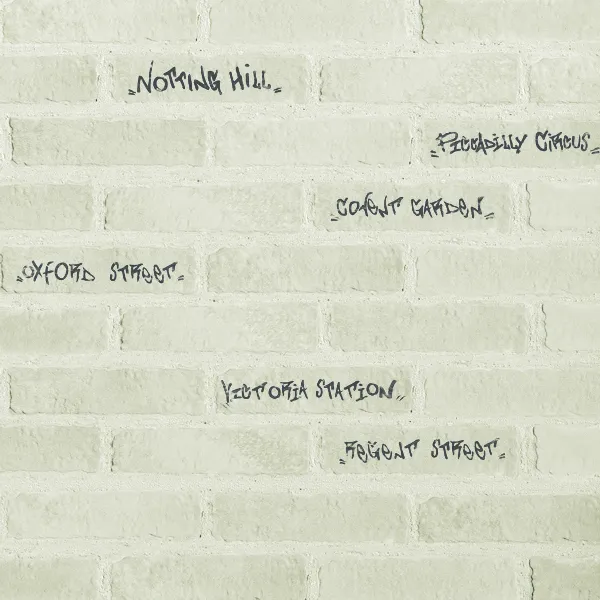 Notting Hill
Piccadilly Circus
Covent Garden
Oxford Street
Victoria Station
Regent Street